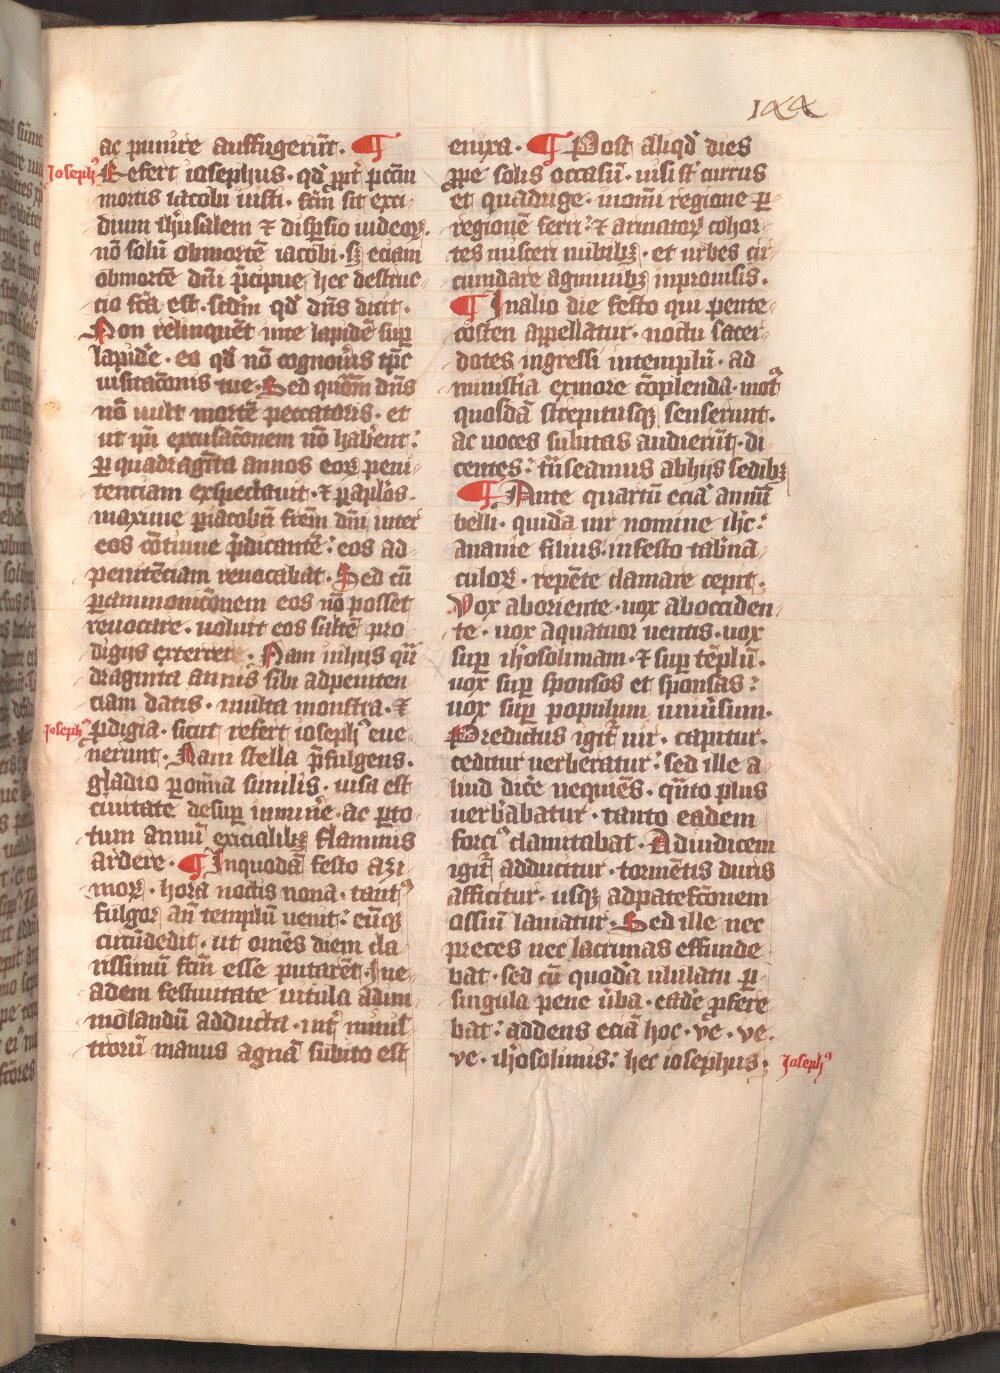 1xx
ac punire auffugerūt. ¶
Joseph9
Refert iosephus · qd̕ ꝓpt̕ pctm̄
mortis iacobi iusti · fcm̄ sit exci
dium ih̕rusalem ⁊ dispersio iudeoꝝ.
nō solū obmortē iacobi · sꝫ eciam
obmortē dn̄i p̄cipue hec destruc
cio fcā est · scdm̄ qd̕ dn̄s dicit ·
Non relinquēt inte lapidē suꝑ
lapidē · eo qd̕ nō cognouis tp̄c
uisitacōnis tue · Sed quōm dn̄s
nō uult mortē peccatoris · et
ut ip̄i excusacōnem nō habent:
ꝑ quadragīta annos eoꝝ peni
tenciam expectauit · ⁊ ꝑ aplōs
maxime ꝑ iacobū frēm dn̄i inter
eos cōtinue p̄dicantē: eos ad
penitēciam reuocabat · Sed cū
ꝑ ammonicōnem eos nō posset
reuocare · uoluit eos saltē pro
digiis exterrere · Nam inhijs qū
draginta annis sibi adpeniten
ciam datis · multa monstra · ⁊
Joseph9
ꝓdigia · sicut refert ioseph9 eue
nerunt · Nam stella p̄fulgens ·
gladio ꝑ omīa similis · uisa est
ciuitate desuꝑ inminēe · ac ꝑ to
tum annū exicialibꝫ flammis
ardere · ¶ Inquodā festo azi
moꝝ · hora noctis nona · tant9
fulgor an̄ templū uenit: eūqꝫ
circūdedit · ut omēs diem cla
rissimū fcm̄ esse putarēt · Jn e
adem festiuitate uitula adim
molandū adducta · int̕ minis
trorū manus agnā subito est
enixa · ¶ Post aliqd̕ dies
ꝓpe solis occasū · uisi st̄ currus
et quadrige · inomī regione ꝑ
regionē ferri · ⁊ armatoꝝ cohor
tes misceri nubibꝫ · et urbes cir
cumdare agminibꝫ inprouisis ·
¶ Inalio die festo qui pente
costen appellatur · noctu sacer
dotes ingressi intemplū · ad
ministīa exmore cōplenda · mot9
quosdā strepitusqꝫ senserunt ·
ac uoces subitas audierūt · di
centes: trn̄seamus abhijs sedibꝫ
¶ Ante quartū eciā annū
belli · quidā uir nomine ih̄c:
ananie filius: infesto tab̕na
culoꝝ · repēte clamare cepit ·
Vox aboriente · uox aboccīden
te · uox aquatuor uentis · uox
suꝑ ih̕osolimam · ⁊ suꝑ tēplū ·
uox suꝑ sponsos et sponsas:
uox suꝑ populum uniu̕sum ·
Predictus igit̕ uir · capitur ·
ceditur uerberatur: sed ille a
liud dic̕e nequiēs · qn̄to plus
uerb̕abatur · tanto eadem
forci9 clamitabat · Adiudicem
igit̕ adducitur · tormētis duris
afficitur · usqꝫ adpatefcōnem
ossiū laniatur · Sed ille nec
preces nec lacrimas effunde
bat · sed cū quodā ululatu ꝑ
singula pene ūba · eadē ꝓfere
bat: addens eciā hoc · ve · ve ·
ve · ih̕osolimis: hec iosephus;
Joseph9